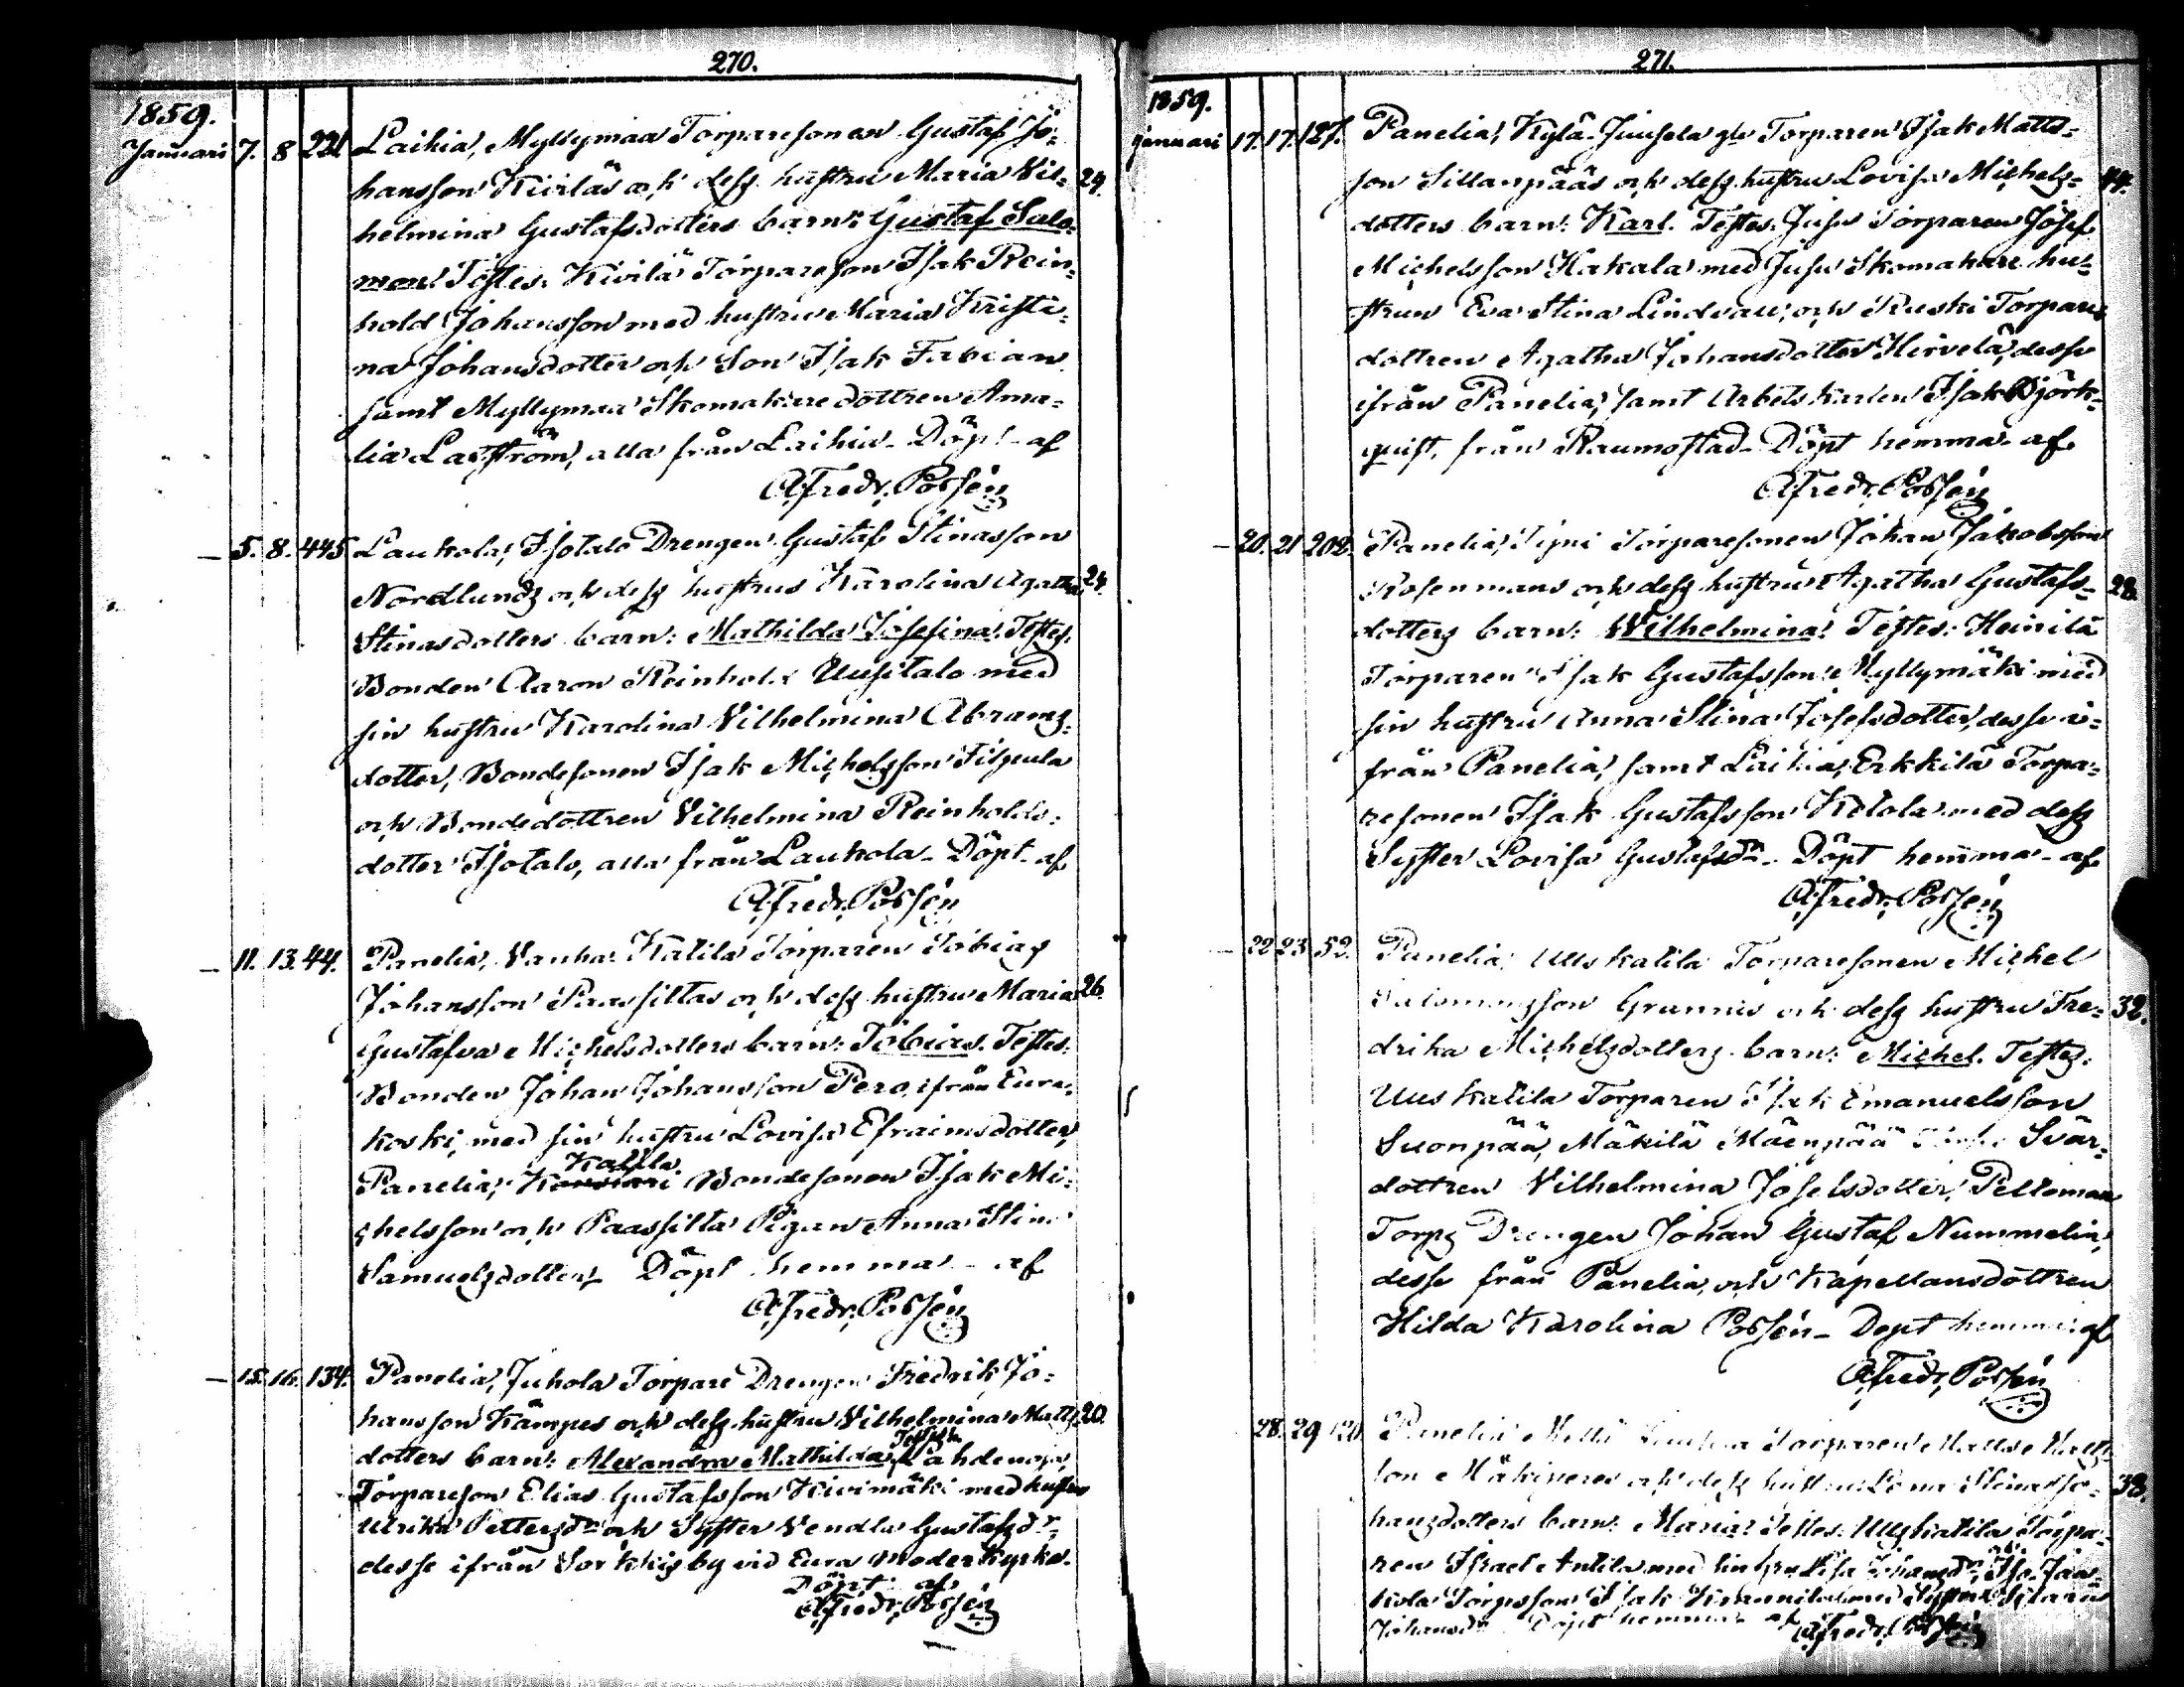 270.
1859.
Januari 7. 8 221 Laihia, Myllymaa Torparesonen Gustaf Jo=
hansson Kiviläs och dess hustru Maria Vil= 29.
helmina Gustafsdotters barn: Gustaf Salo=
mon. Testes: Kivilä Torpareson Isak Rein=
hold Johansson med hustru Maria Kristi=
na Johansdotter och Son Isak Fabian
samt Myllymaa Skomakaredottren Ama=
lia Laström, alla från Laihia. Döpt af
A. Fredr. Possén
— 5. 8. 445 Laukola, Isotalo Drengen Gustaf Stinasson
Nordlunds och dess hustrus Karolina Agatha 24.
Stinasdotters barn: Mathilda Josefina. Testes:
Bonden Aaron Reinhold Uusitalo med
sin hustru Karolina Vilhelmina Abrams=
dotter, Bondesonen Isak Michelsson
och Bondedottren Vilhelmina Reinholds=
dotter Isotalo, alla från Laukola. Döpt af
A. Fredr. Possén
— 11. 13. 44. Panelia, Vanha Katila Torparen Tobias
Johansson Paasiltas och dess hustru Maria 26.
Gustafva Michelsdotters barn: Tobias. Testes:
Bonden Johan Johansson Pero ifrån Eura=
koski, med sin hustru Lovisa Efraimsdotter,
Katila
Panelia, Bondesonen Isak Mi=
chelsson och Paassilta Pigan Anna Stina
Samuelsdotter. Döpt hemma af
A. Fredr. Possén
— 15. 16. 134. Panelia, Juhola Torpare Drengen Fredrik Jo=
hansson Kämpes och dess hustru Vilhelmina Matts 20.
Testes
dotters barn: Alexandra Mathilda. Lahdenoja
Torpareson Elias Gustafsson Kivimäki med hustru
Ulrika Pettersdr och Syster Vendla Gustafsdr,
desse ifrån Sorkkis by vid Eura Moderkyrka.
Döpt af
A. Fredr. Possén
271.
1859.
januari 17. 17. 127. Panelia, Kylä-Juusela gla Torparen Isak Matts=
son Sillanpääs och dess hustru Lovisa Michels= 44.
dotters barn: Karl. Testes: Juhu Torparen Josef
Michelsson Hakala med Juhu Skomakare hu=
strun Eva Stina Lindvall, och Ruski Torpare
dottren Agatha Johansdotter Hirvelä, desse
ifrån Panelia, samt Arbets karlen Isak Björk=
quist, från Raumo stad. Döpt hemma af
A. Fredr. Possén
— 20. 21 202. Panelia, Torparesonen Johan Jakobsson
Rosenmans och dess hustru Agatha Gustafs= 28.
dotters barn: Wilhelmina. Testes: Heinilä
Torparen Isak Gustafsson Myllymäki med
sin hustru Anna Stina Josefsdotter, desse i=
från Panelia, samt Laihia, Erkkilä Torpa=
resonen Isak Gustafsson Ketola med dess
Syster Lovisa Gustafsdr. Döpt hemma af
A. Fredr. Possén
— 22 23 52. Panelia, Uus katila Torparesonen Michel
Salomonsson Grannis och dess hustru Fre= 32.
drika Michelsdotters barn: Michel. Testes:
Uus katila Torparen Isak Emanuelsson
Suonpää, Mäkilä Mäenpää Svär=
dottren Vilhelmina Josefsdotter, Peltomaa
Torps Drengen Johan Gustaf Nummelin,
desse från Panelia, och Kapellansdottren
Hilda Karolina Possén. Döpt hemma af
A. Fredr. Possén
28. 29 120 Panelia Torparen Matts Matts
son Mäkiveres och dess hustru Lena Stina Jo= 38.
hansdotters barn: Maria. Testes: Uuskatila Torpa=
ren Israel Antila med sin hru Lisa Johansdr, Iso Jaa=
kola Torpsson Isak med Syster
Johansdr Döpt hemma af A. Fredr. Possén